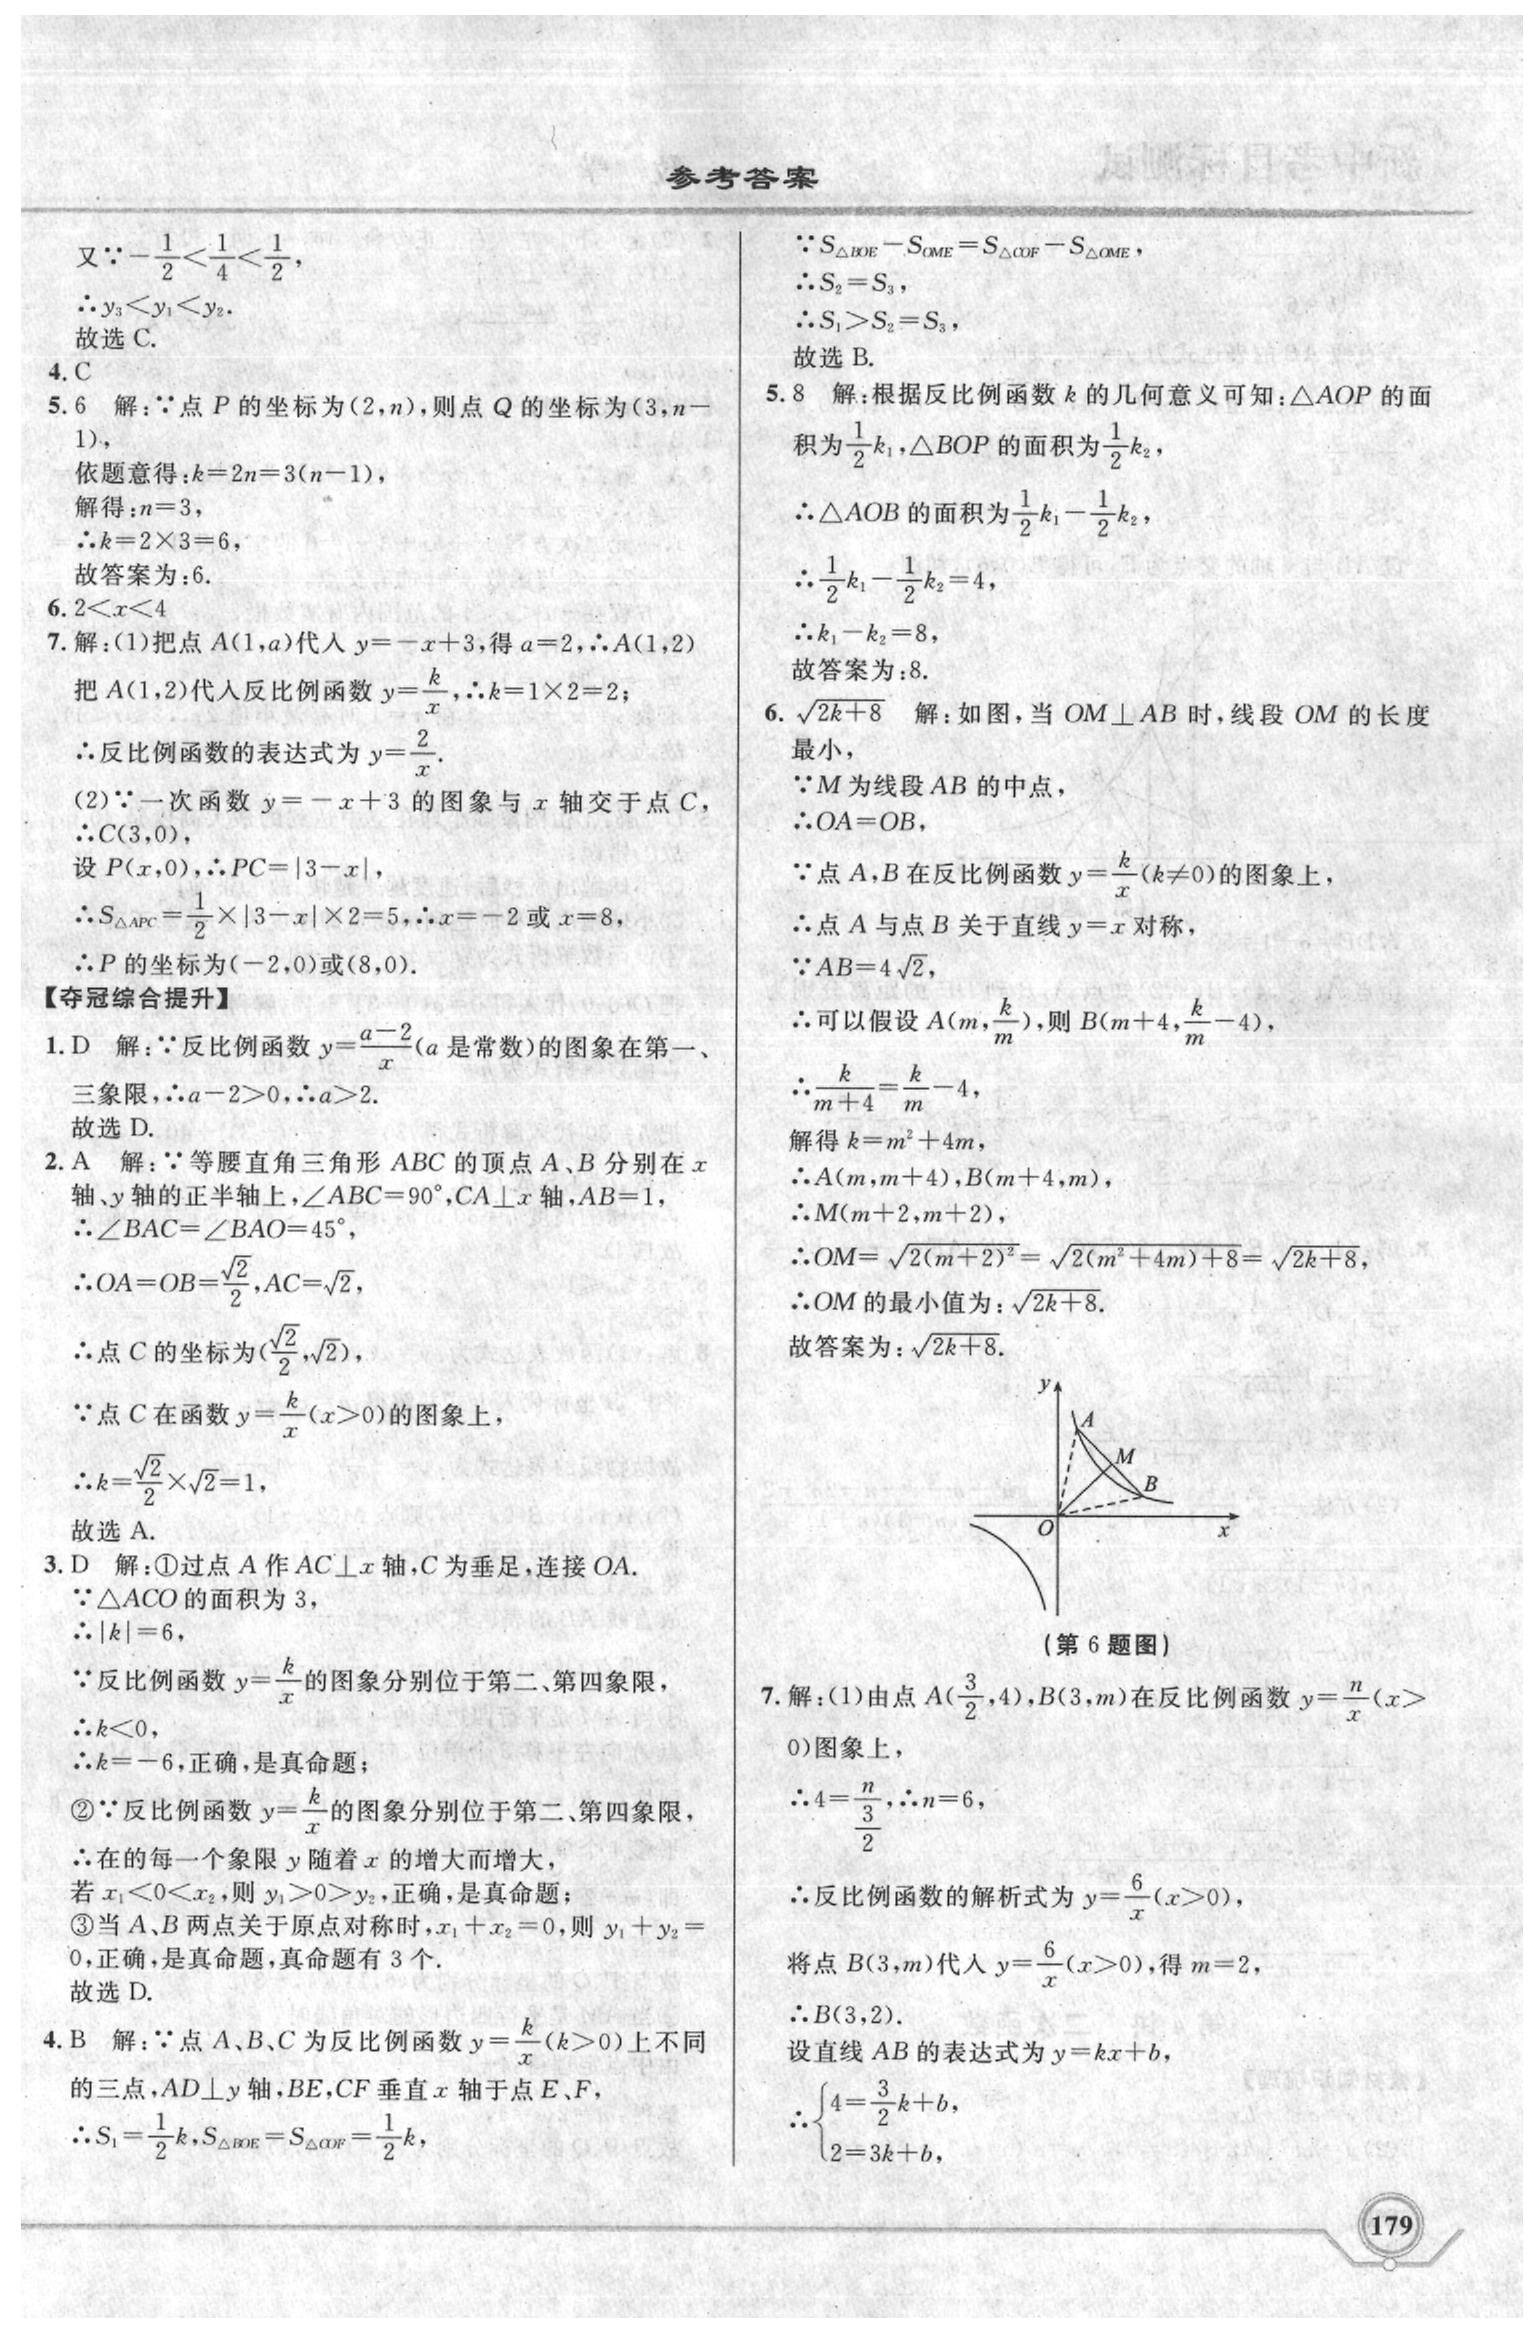 参考答案
又∵-1/2<1/4<1/2,
∴y₃<y₁<y₂.
故选 C.
4. C
5. 6 解:∵点 P 的坐标为(2,n),则点 Q 的坐标为(3,n-
1),
依题意得:k=2n=3(n-1),
解得:n=3,
∴k=2×3=6,
故答案为:6.
6. 2<x<4
7. 解:(1)把点 A(1,a)代入 y=-x+3,得 a=2,∴A(1,2)
把 A(1,2)代入反比例函数 y=k/x,∴k=1×2=2;
∴反比例函数的表达式为 y=2/x.
(2)∵一次函数 y=-x+3 的图象与 x 轴交于点 C,
∴C(3,0),
设 P(x,0),∴PC=|3-x|,
∴S△APC=1/2×|3-x|×2=5,∴x=-2 或 x=8,
∴P 的坐标为(-2,0)或(8,0).
【夺冠综合提升】
1. D 解:∵反比例函数 y=(a-2)/x(a 是常数)的图象在第一、
三象限,∴a-2>0,∴a>2.
故选 D.
2. A 解:∵等腰直角三角形 ABC 的顶点 A、B 分别在 x
轴、y 轴的正半轴上,∠ABC=90°,CA⊥x 轴,AB=1,
∴∠BAC=∠BAO=45°,
∴OA=OB=√2/2,AC=√2,
∴点 C 的坐标为(√2/2,√2),
∵点 C 在函数 y=k/x(x>0)的图象上,
∴k=√2/2×√2=1,
故选 A.
3. D 解:①过点 A 作 AC⊥x 轴,C 为垂足,连接 OA.
∵△ACO 的面积为 3,
∴|k|=6,
∵反比例函数 y=k/x的图象分别位于第二、第四象限,
∴k<0,
∴k=-6,正确,是真命题;
②∵反比例函数 y=k/x的图象分别位于第二、第四象限,
∴在的每一个象限 y 随着 x 的增大而增大,
若 x₁<0<x₂,则 y₁>0>y₂,正确,是真命题;
③当 A、B 两点关于原点对称时,x₁+x₂=0,则 y₁+y₂=
0,正确,是真命题,真命题有 3 个.
故选 D.
4. B 解:∵点 A、B、C 为反比例函数 y=k/x(k>0)上不同
的三点,AD⊥y 轴,BE,CF 垂直 x 轴于点 E、F,
∴S₁=1/2k,S△BOE=S△COF=1/2k,
∵S△BOE-SOME=S△COF-S△OME,
∴S₂=S₃,
∴S₁>S₂=S₃,
故选 B.
5. 8 解:根据反比例函数 k 的几何意义可知:△AOP 的面
积为1/2k₁,△BOP 的面积为1/2k₂,
∴△AOB 的面积为1/2k₁-1/2k₂,
∴1/2k₁-1/2k₂=4,
∴k₁-k₂=8,
故答案为:8.
6. √(2k+8) 解:如图,当 OM⊥AB 时,线段 OM 的长度
最小,
∵M 为线段 AB 的中点,
∴OA=OB,
∵点 A,B 在反比例函数 y=k/x(k≠0)的图象上,
∴点 A 与点 B 关于直线 y=x 对称,
∵AB=4√2,
∴可以假设 A(m,k/m),则 B(m+4,k/m-4),
∴k/(m+4)=k/m-4,
解得 k=m²+4m,
∴A(m,m+4),B(m+4,m),
∴M(m+2,m+2),
∴OM=√(2(m+2)²)=√(2(m²+4m)+8)=√(2k+8),
∴OM 的最小值为:√(2k+8).
故答案为:√(2k+8).
y
A
M
B
O
x
(第 6 题图)
7. 解:(1)由点 A(3/2,4),B(3,m)在反比例函数 y=n/x(x>
0)图象上,
∴4=n/(3/2),∴n=6,
∴反比例函数的解析式为 y=6/x(x>0),
将点 B(3,m)代入 y=6/x(x>0),得 m=2,
∴B(3,2).
设直线 AB 的表达式为 y=kx+b,
∴{4=3/2k+b,
2=3k+b,
179